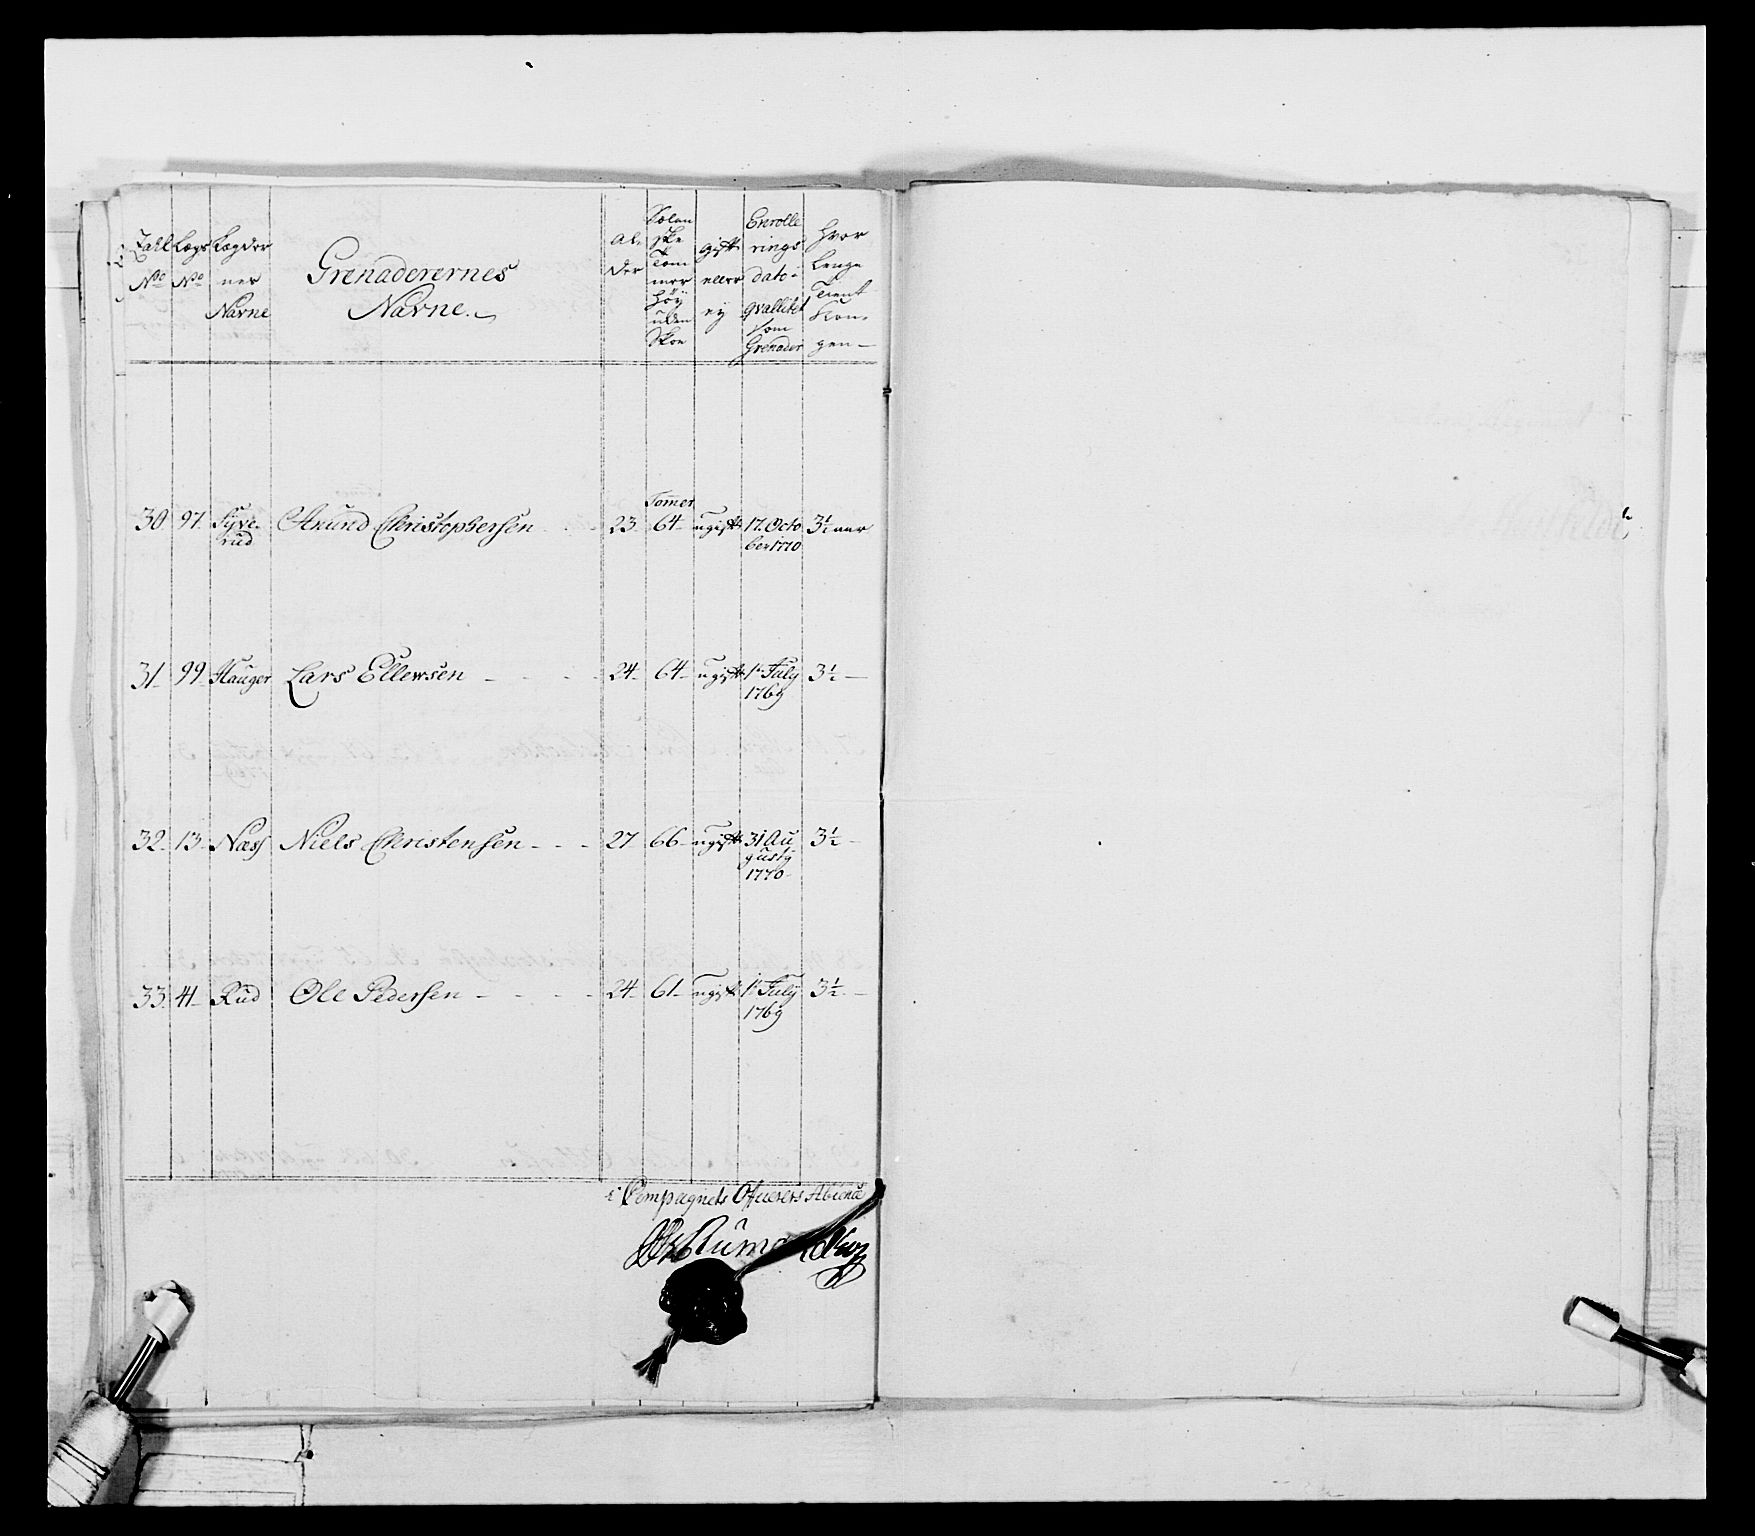 Zahl No | Lægs No | Lægder nes Navne | Grenaderernes Navne. | Al- der | gift eller ey | Enrolle rings dato i qvallitet som Grenader | Hvor lenge Tient Kon- gen
30 | 97 | Syve- rud | Anund Christophersen | 23 | Tomer 64 | ugift | 17. Octo ber 1770 | 3½ aar
31 | 99 | Hauger | Lars Ellewsen | 24 | 64 | ugift | 1te July 1769 | 3½
32 | 13 | Næss | Niels Christensen | 27 | 66 | ugift | 31 Au gusty 1770 | 3½
33 | 41 | Rud | Ole Pedersen | 24 | 61 | ugift | 1te July 1769 | 3½
Compagnets Officerers